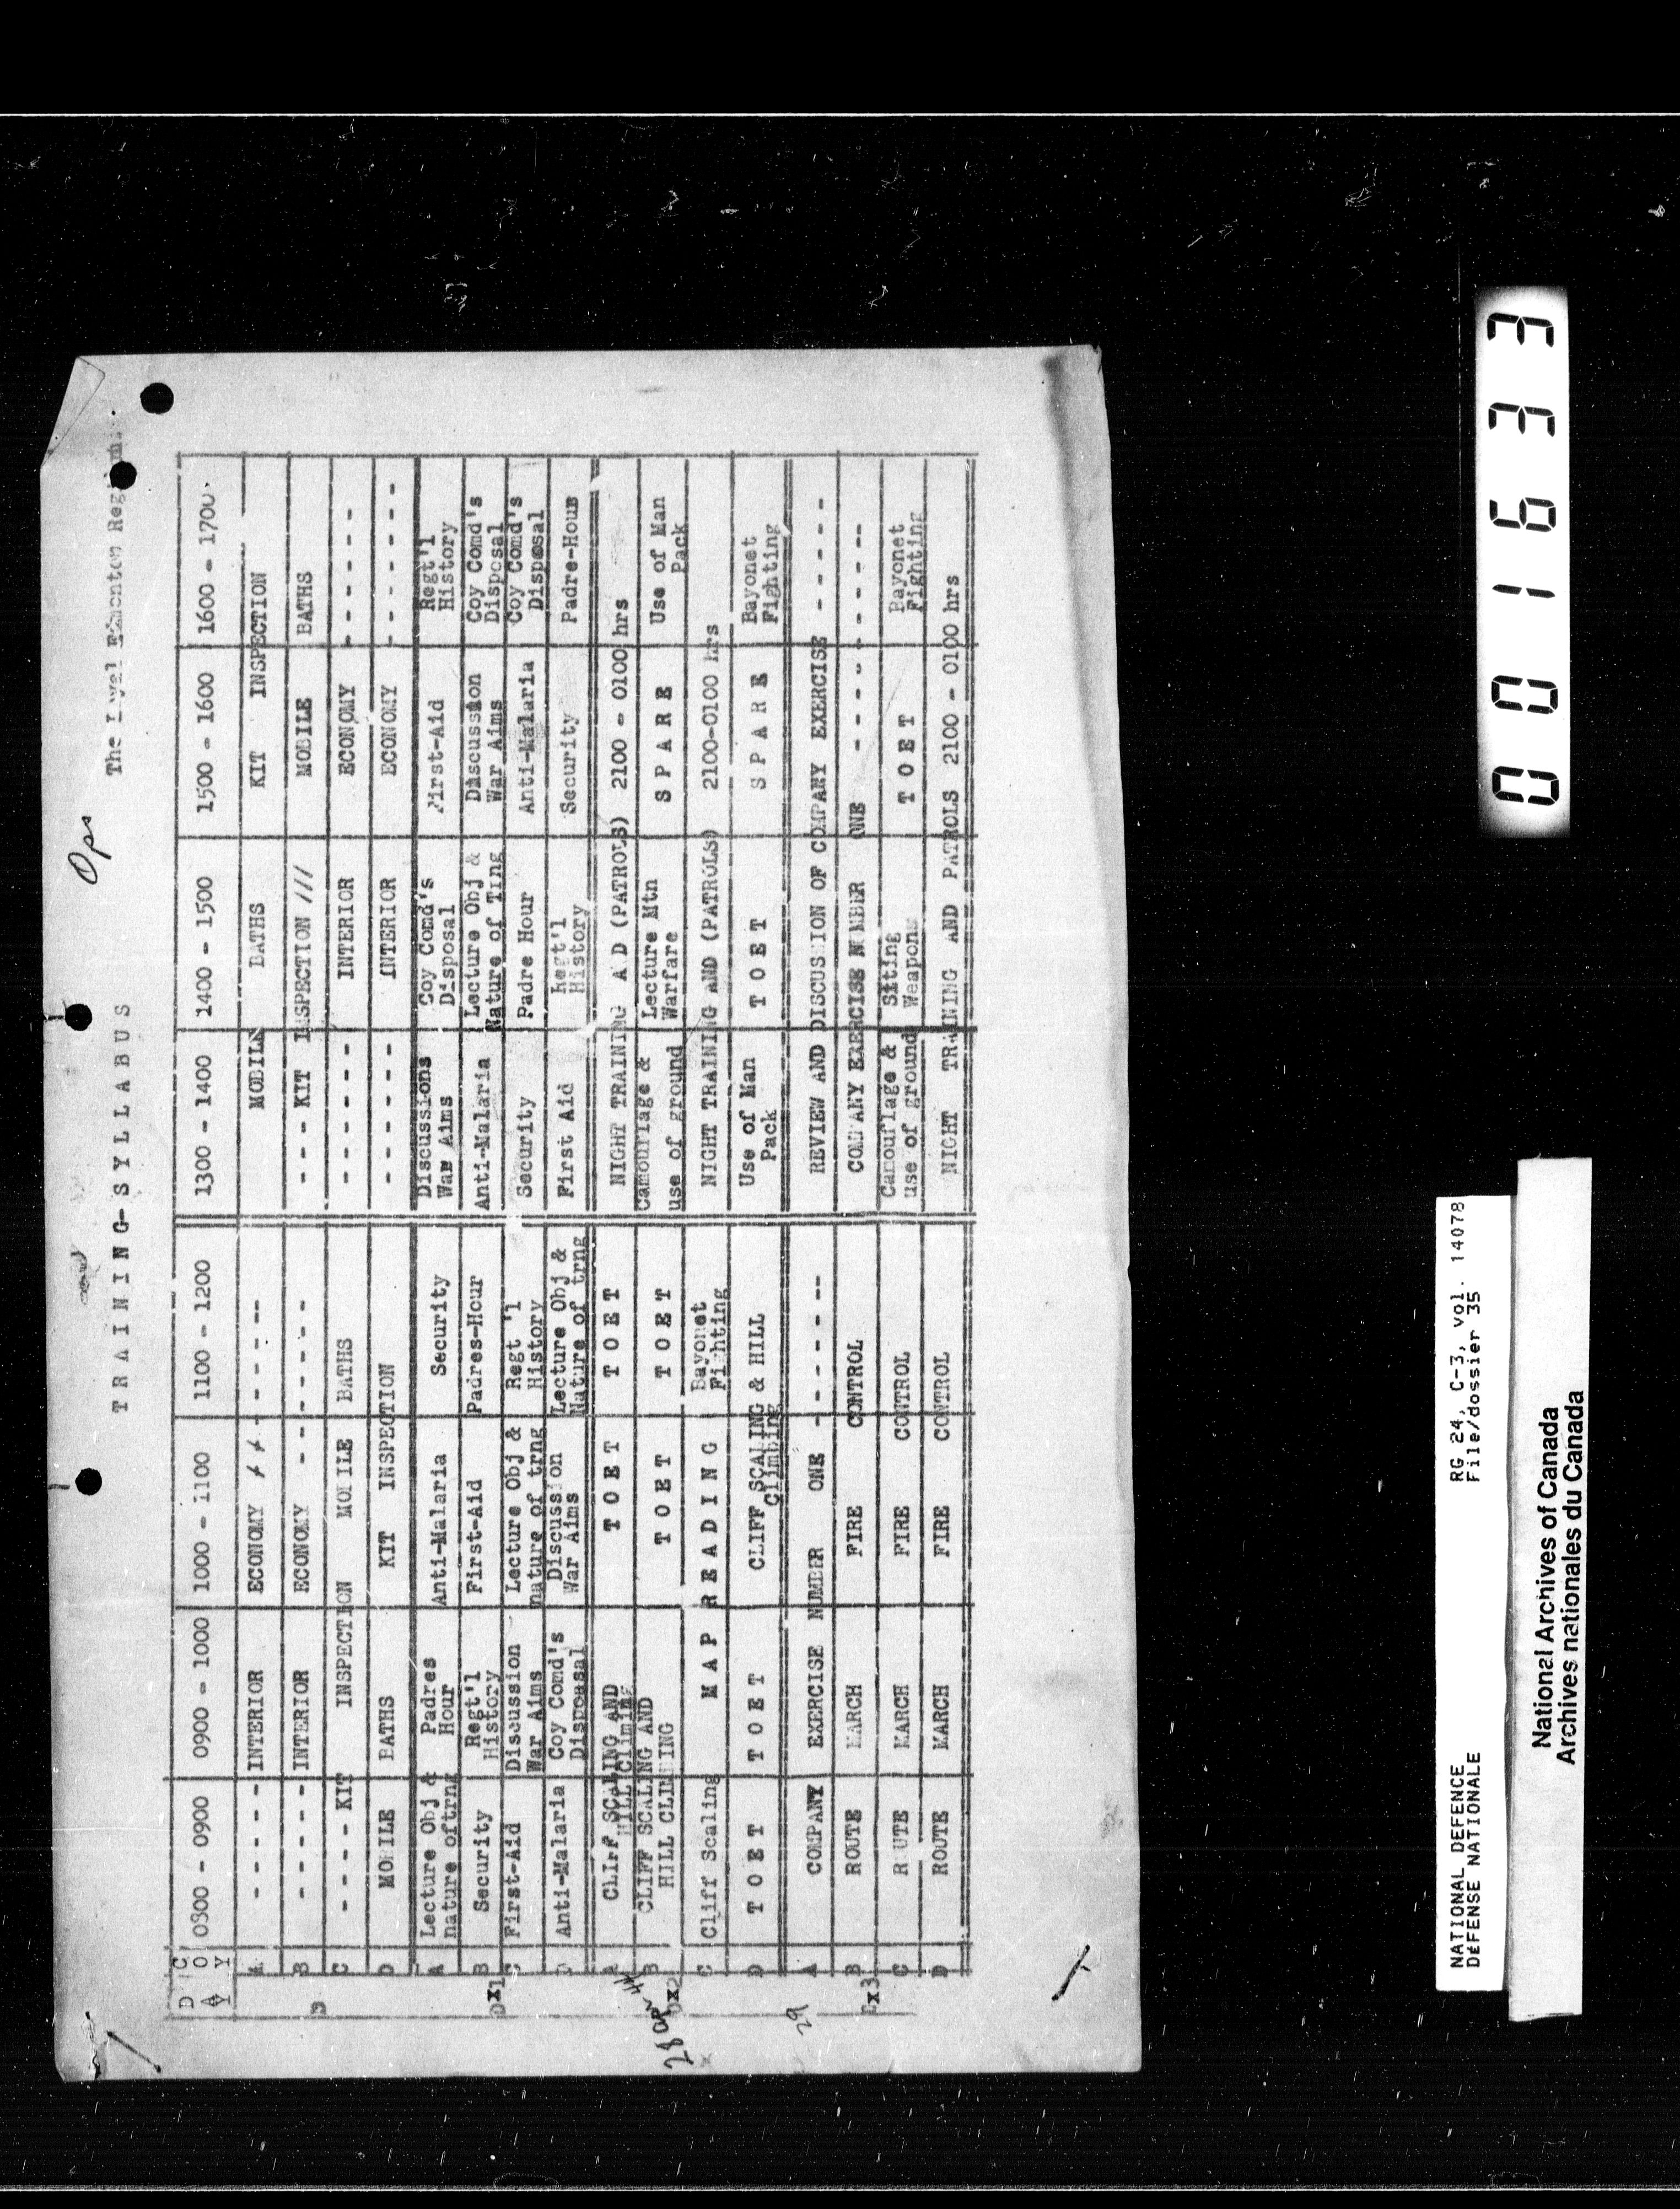 Ops
TRAINING-SYLLABUS The Loyal Edmonton
D C
A O 0800 - 0900 0900 - 1000 1000 - 1100 1100 - 1200 1300 - 1400 1400 - 1500 1500 - 1600 1600 - 1700
Y Y
A - - - - - INTERIOR ECONOMY - - - - - MOBILE BATHS KIT INSPECTION
B - - - - - INTERIOR ECONOMY - - - - - - - - - KIT INSPECTION /// MOBILE BATHS
D
C - - - KIT INSPECTION MOBILE BATHS - - - - - - INTERIOR ECONOMY - - - - - -
D MOBILE BATHS KIT INSPECTION - - - - - - INTERIOR ECONOMY - - - - - -
A Lecture Obj & Padres Anti-Malaria Security Discussions Coy Comd's First-Aid Regt'l
nature oftrng Hour War Aims Disposal History
B Security Regt'l First-Aid Padres-Hour Anti-Malaria Lecture Obj & Discussion Coy Comd's
History Nature of Ting War Aims Disposal
Dx1
C First-Aid Discussion Lecture Obj & Regt 'l Security Padre Hour Anti-Malaria Coy Comd's
War Aims nature of trng History Disposal
D Anti-Malaria Coy Comd's Discussion Lecture Obj & First Aid Regt'l Security Padre-Hour
Disposal War Aims Nature of trng History
A CLIFF SCALING AND T O E T T O E T NIGHT TRAINING A D (PATROLS) 2100 - 0100 hrs
HILL Climing
28 Apr 44
B CLIFF SCALING AND T O E T T O E T Camouflage & Lecture Mtn S P A R E Use of Man
HILL CLIMBING use of ground Warfare Pack
Dx2
C Cliff Scaling M A P R E A D I N G Bayonet NIGHT TRAINING AND (PATROLS) 2100-0100 hrs
Fighting
D T O E T T O E T CLIFF SCALING & HILL Use of Man T O E T S P A R E Bayonet
Climbing Pack Fighting
29
A COMPANY EXERCISE NUMBER ONE - - - - - - -- REVIEW AND DISCUSSION OF COMPANY EXERCISE - - - - - -
B ROUTE MARCH FIRE CONTROL COMPANY EXERCISE NUMBER ONE - - - - - - - - --
Dx3
C R UTE MARCH FIRE CONTROL Camouflage & Siting T O E T Bayonet
use of ground Weapons Fighting
D ROUTE MARCH FIRE CONTROL NIGHT TRAINING AND PATROLS 2100 - 0100 hrs
001633
NATIONAL DEFENCE RG 24, C-3, vol. 14078
DÉFENSE NATIONALE File/dossier 35
National Archives of Canada
Archives nationales du Canada